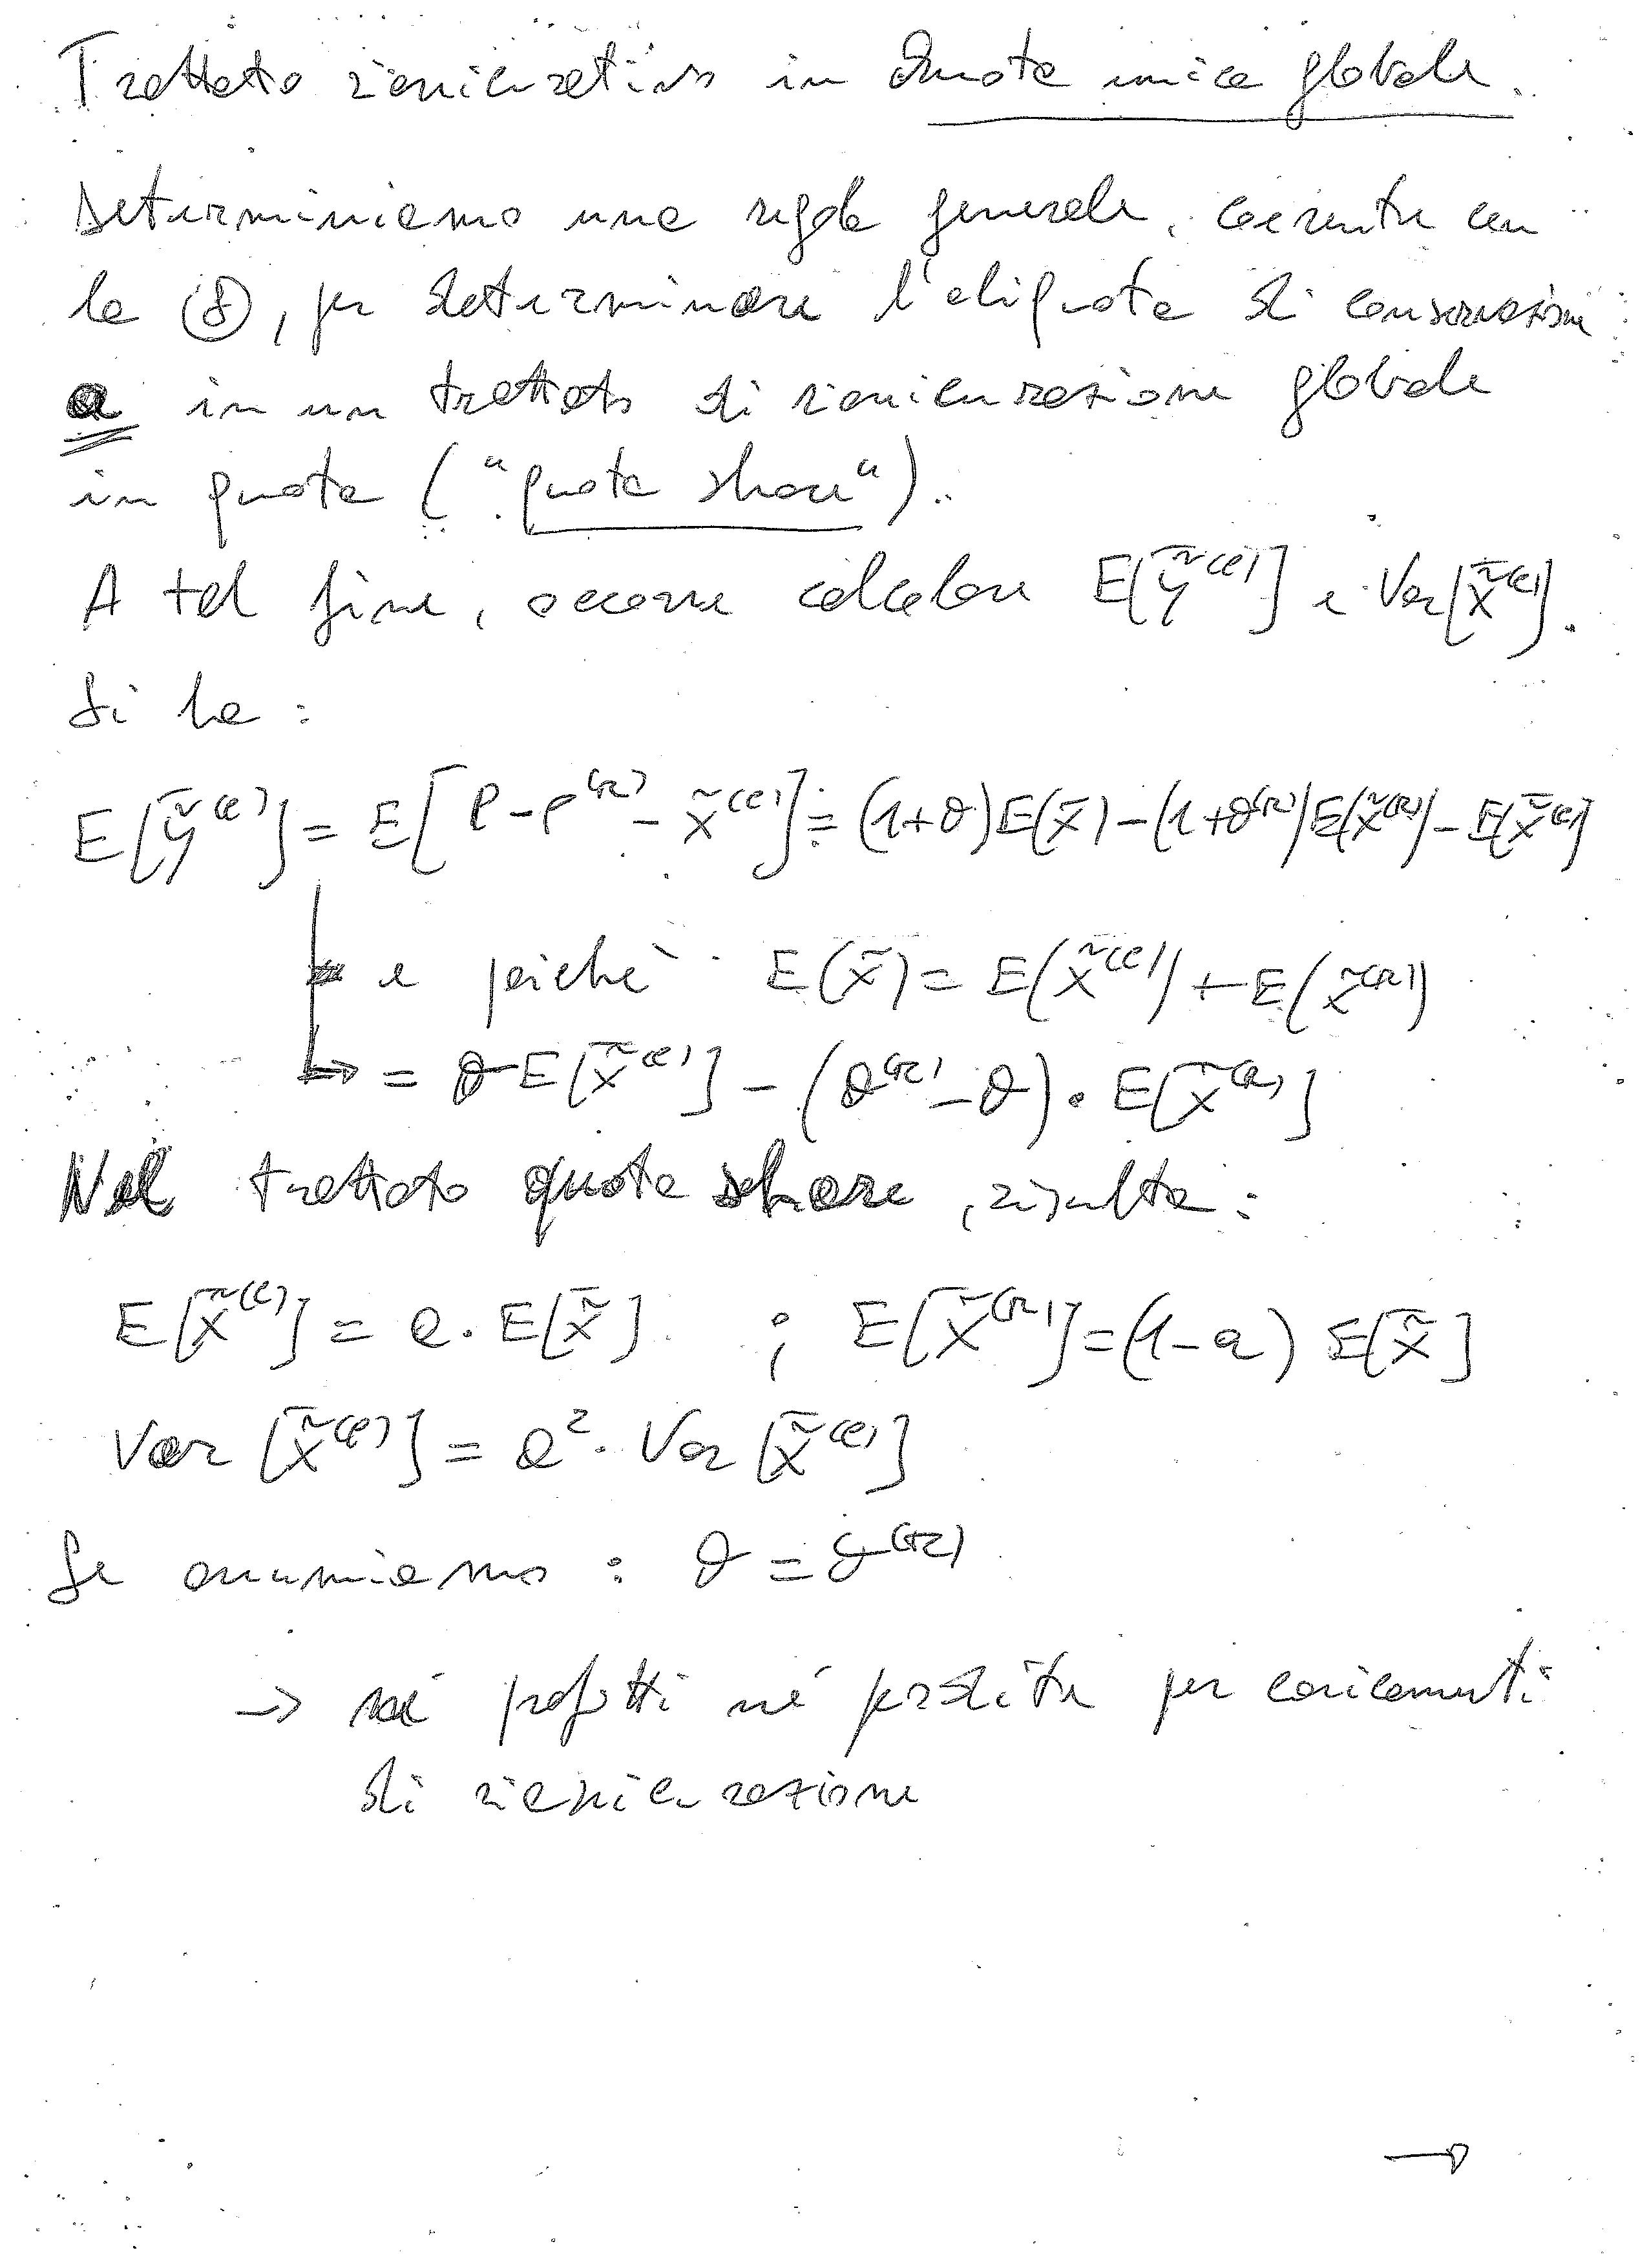 Trattato riassicurativo in Quota unica globale.
Determiniamo una regola generale, coerente con
la (8), per determinare l'aliquota di conservazione
a in un trattato di riassicurazione globale
in quota ("quota share").
A tal fine, occorre calcolare E[ỹ^(c)] e Var[x̃^(c)].
Si ha:
E[ỹ^(c)] = E[P - P^(r) - x̃^(c)] = (1+θ)E(x̃) - (1+θ^(r))E(x̃^(r)) - E[x̃^(c)]
e poiché E(x̃) = E(x̃^(c)) + E(x̃^(r))
↳ = θE[x̃^(c)] - (θ^(r) - θ) · E[x̃^(r)]
Nel trattato quota share, risulta:
E[x̃^(c)] = a · E[x̃] ; E[x̃^(r)] = (1-a) E[x̃]
Var[x̃^(c)] = a² · Var[x̃^(c)]
Se assumiamo : θ = θ^(r)
→ né profitti né perdite per caricamenti
di riassicurazione
→